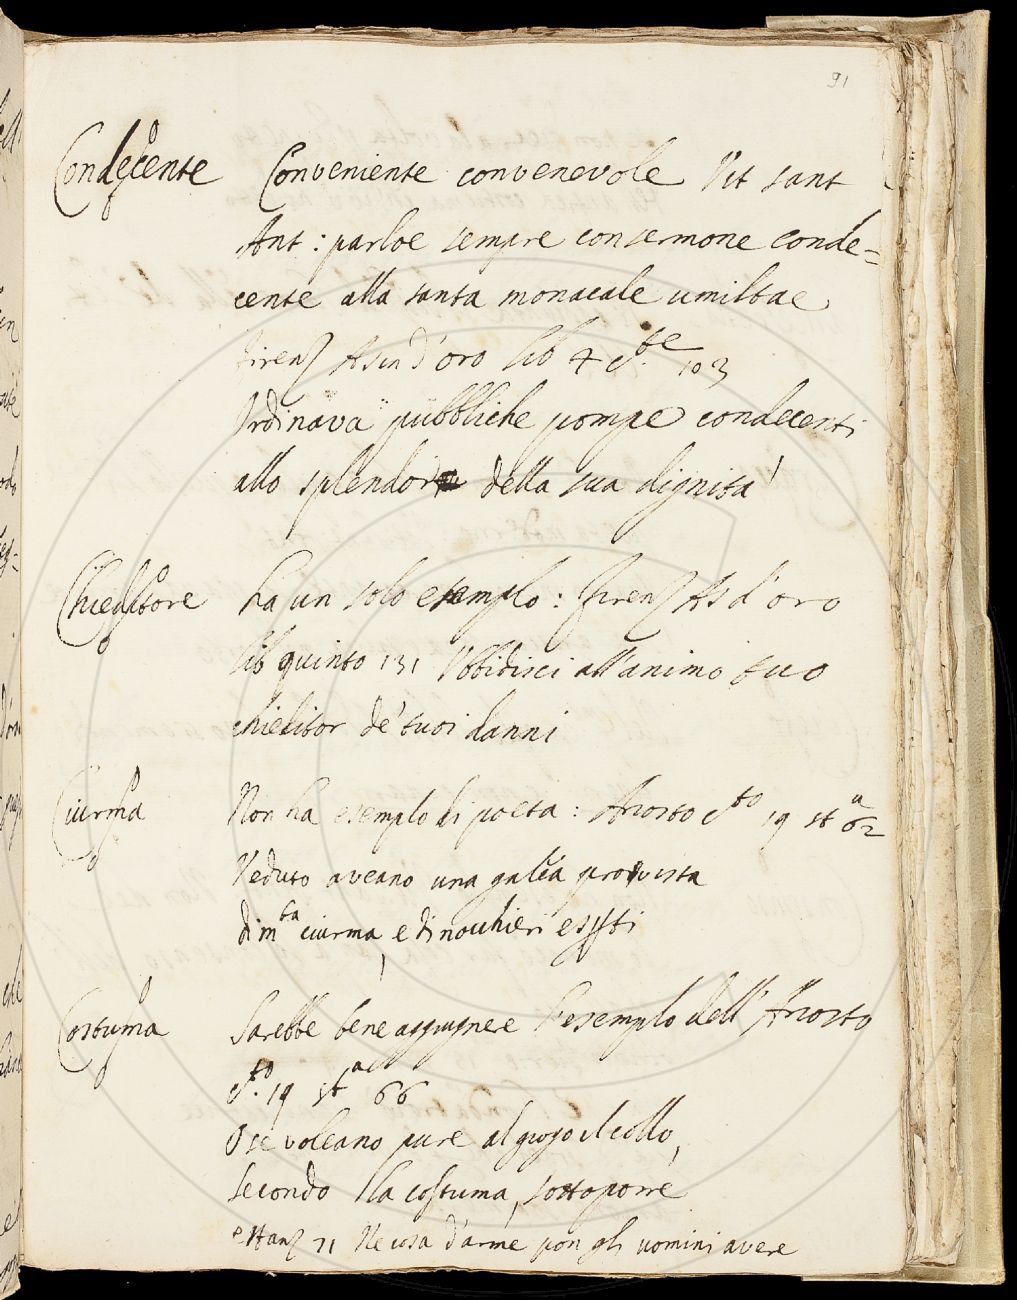 91
Condecente Conveniente convenevole Vit sant
Ant: parloe sempre con sermone conde=
cente alla santa monacale umiltae
Firenz Asin d'oro lib 4 c.te 103
Ordinava pubbliche pompe condecenti
allo splendor della sua dignita'
Chieditore ha un solo esemplo: Firenz As d'oro
lib quinto 131 Vbbidisci all'animo tuo
chieditor de' tuoi danni
Ciurma Non ha esemplo di poeta: Ariosto c.to 19 st.a 62
Veduto aveano una galea provista
di m.ta ciurma, e di nochieri esp.ti
Costuma Sarebbe bene aggiugnere l'esemplo dell'Ariosto
c.to 19 st.a 66
O se voleano pure al giogo il collo,
secondo lla costuma, sottoporre
e stanz 71 Ne cosa d'arme pon gli uomini avere